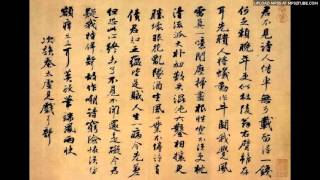 UPLOAD MP3S AT
WWW.TUNESTOTUBE.COM
君不見詩人借車無可載留得一錢
何足賴晚年更似杜陵翁右臂雖存
耳先聵人將蟻動作牛鬥我覺風
雷真一噫聞塵掃盡根性空不須更枕
清流派大朴初散失混沌六鑿相攘更
勝壞眼花亂墜酒生風口業不停詩
有債君知五蘊皆是賊人生一病今先差
但恐此心終未了不見不聞還是礙今君
疑我特佯聾故作嘲詩窮嶮怪須防
額癢出三耳莫放筆端風雨快
次韻秦太虛見戲耳聾